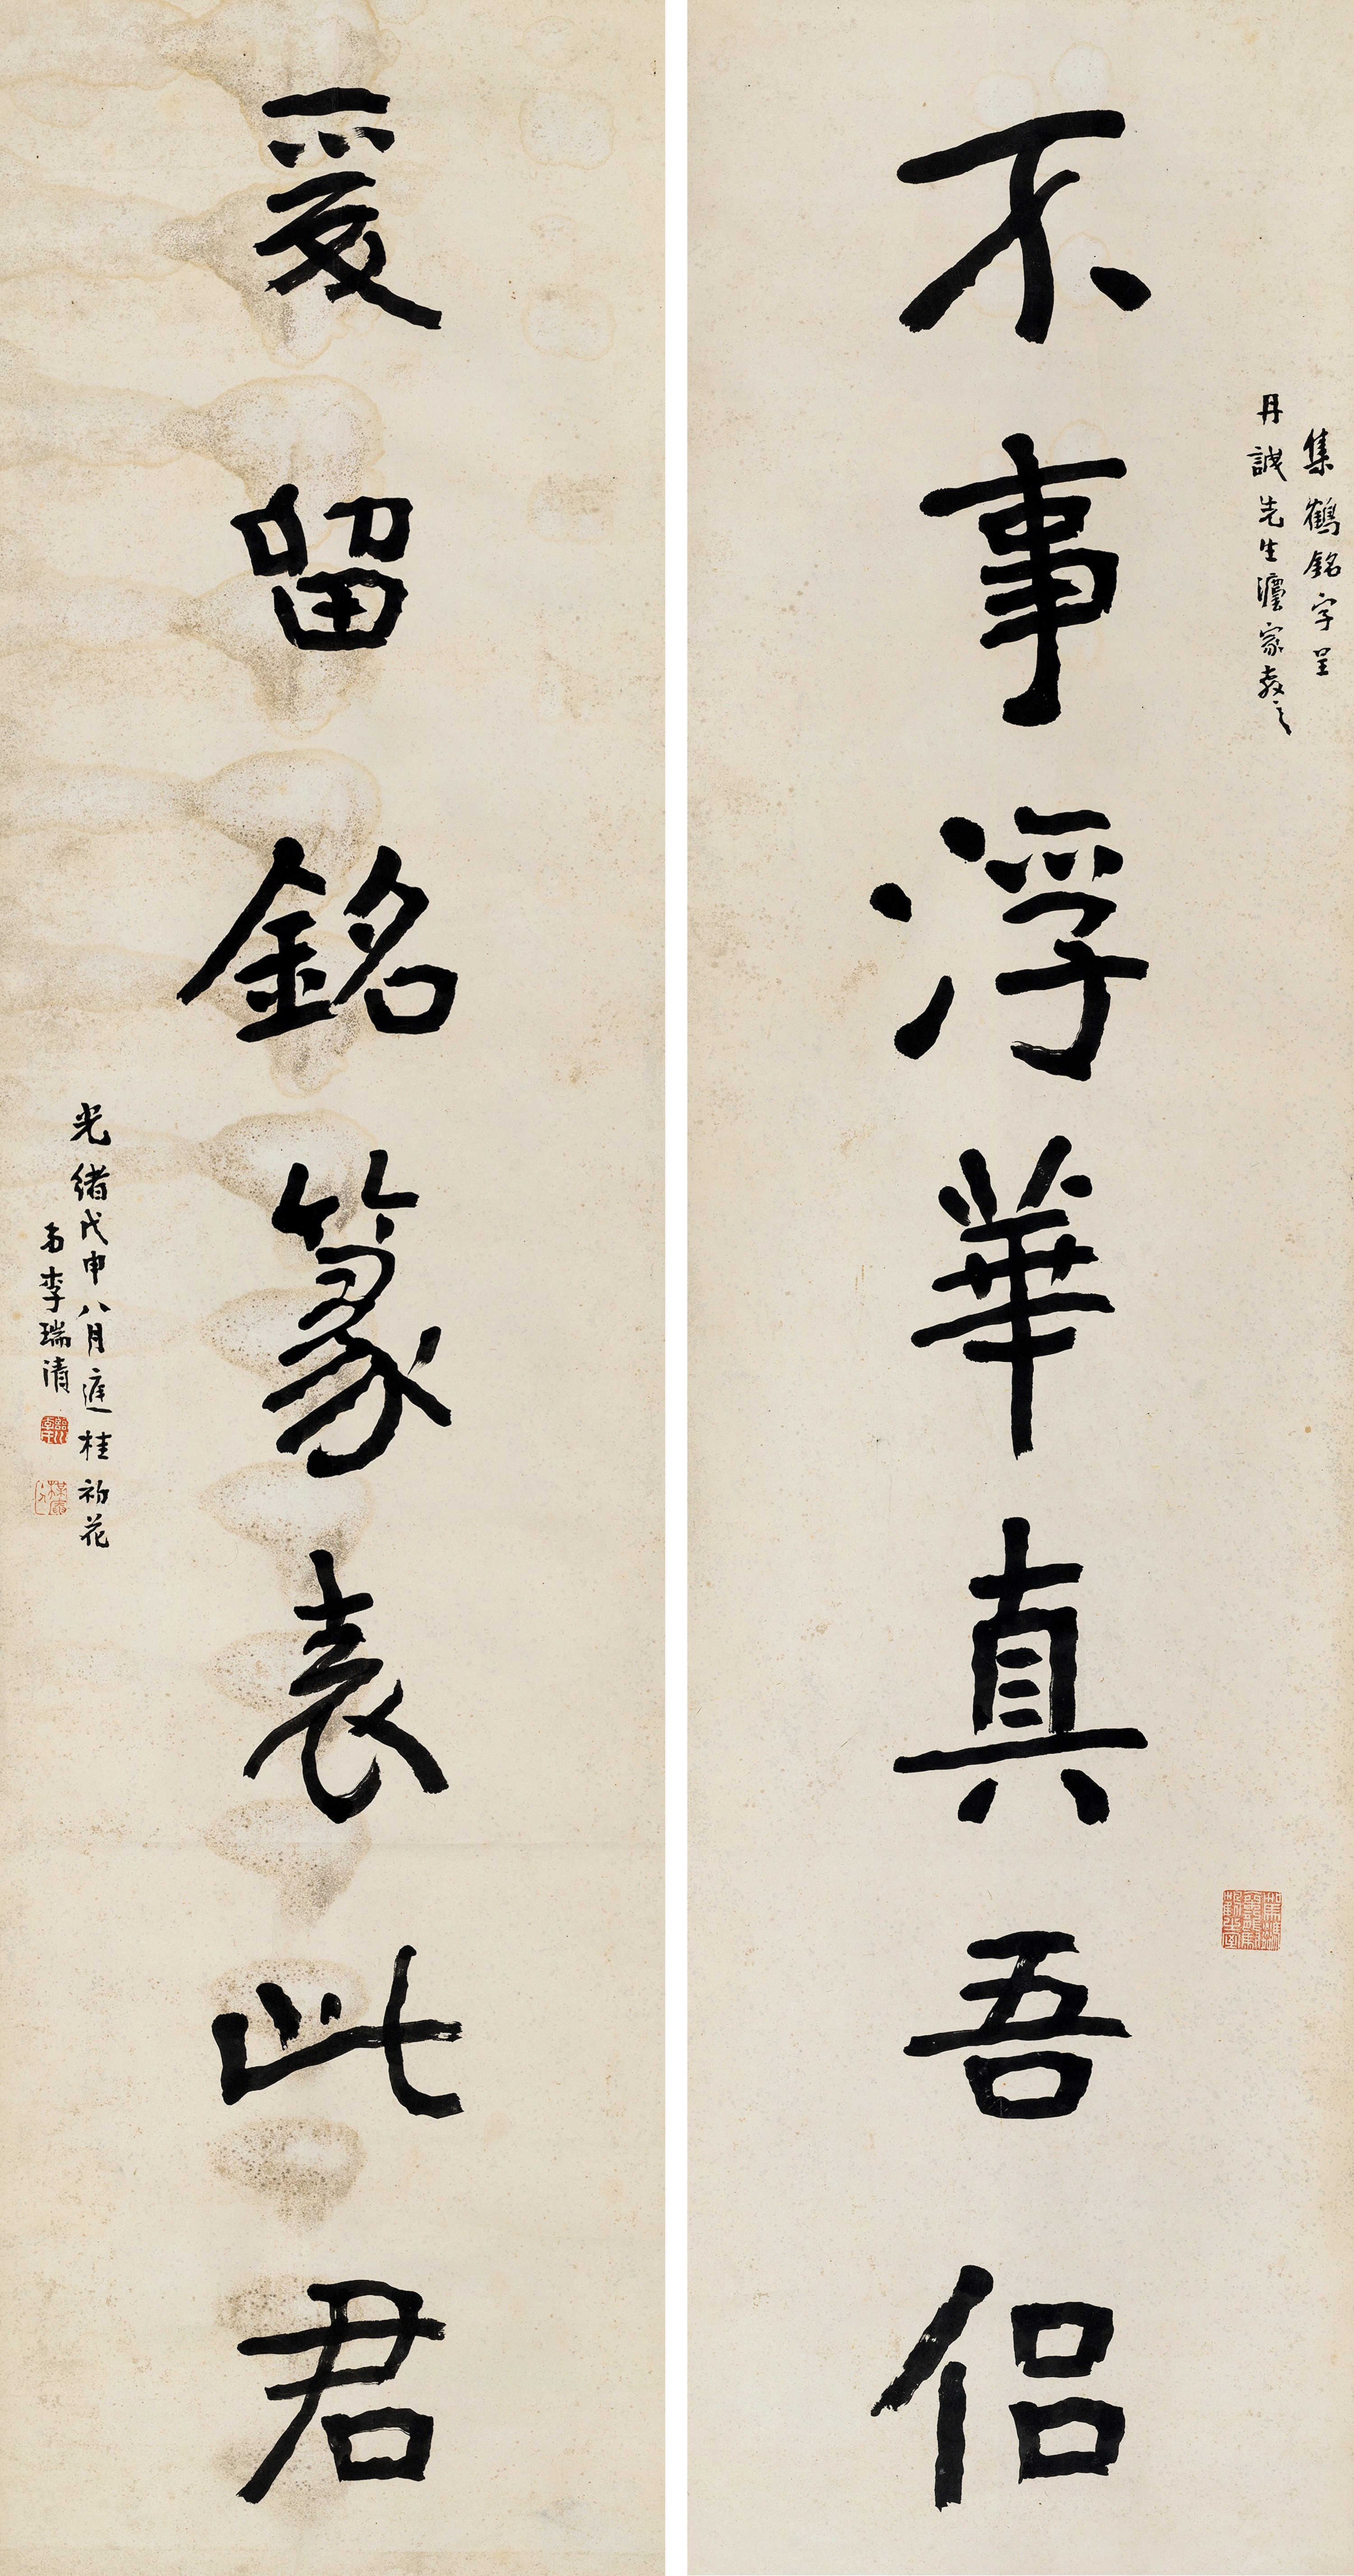 不事浮華真吾侶
集鶴銘字呈
丹誠先生灋家教之
爰留銘篆表此君
光緒戊申八月庭桂初花
弟李瑞清